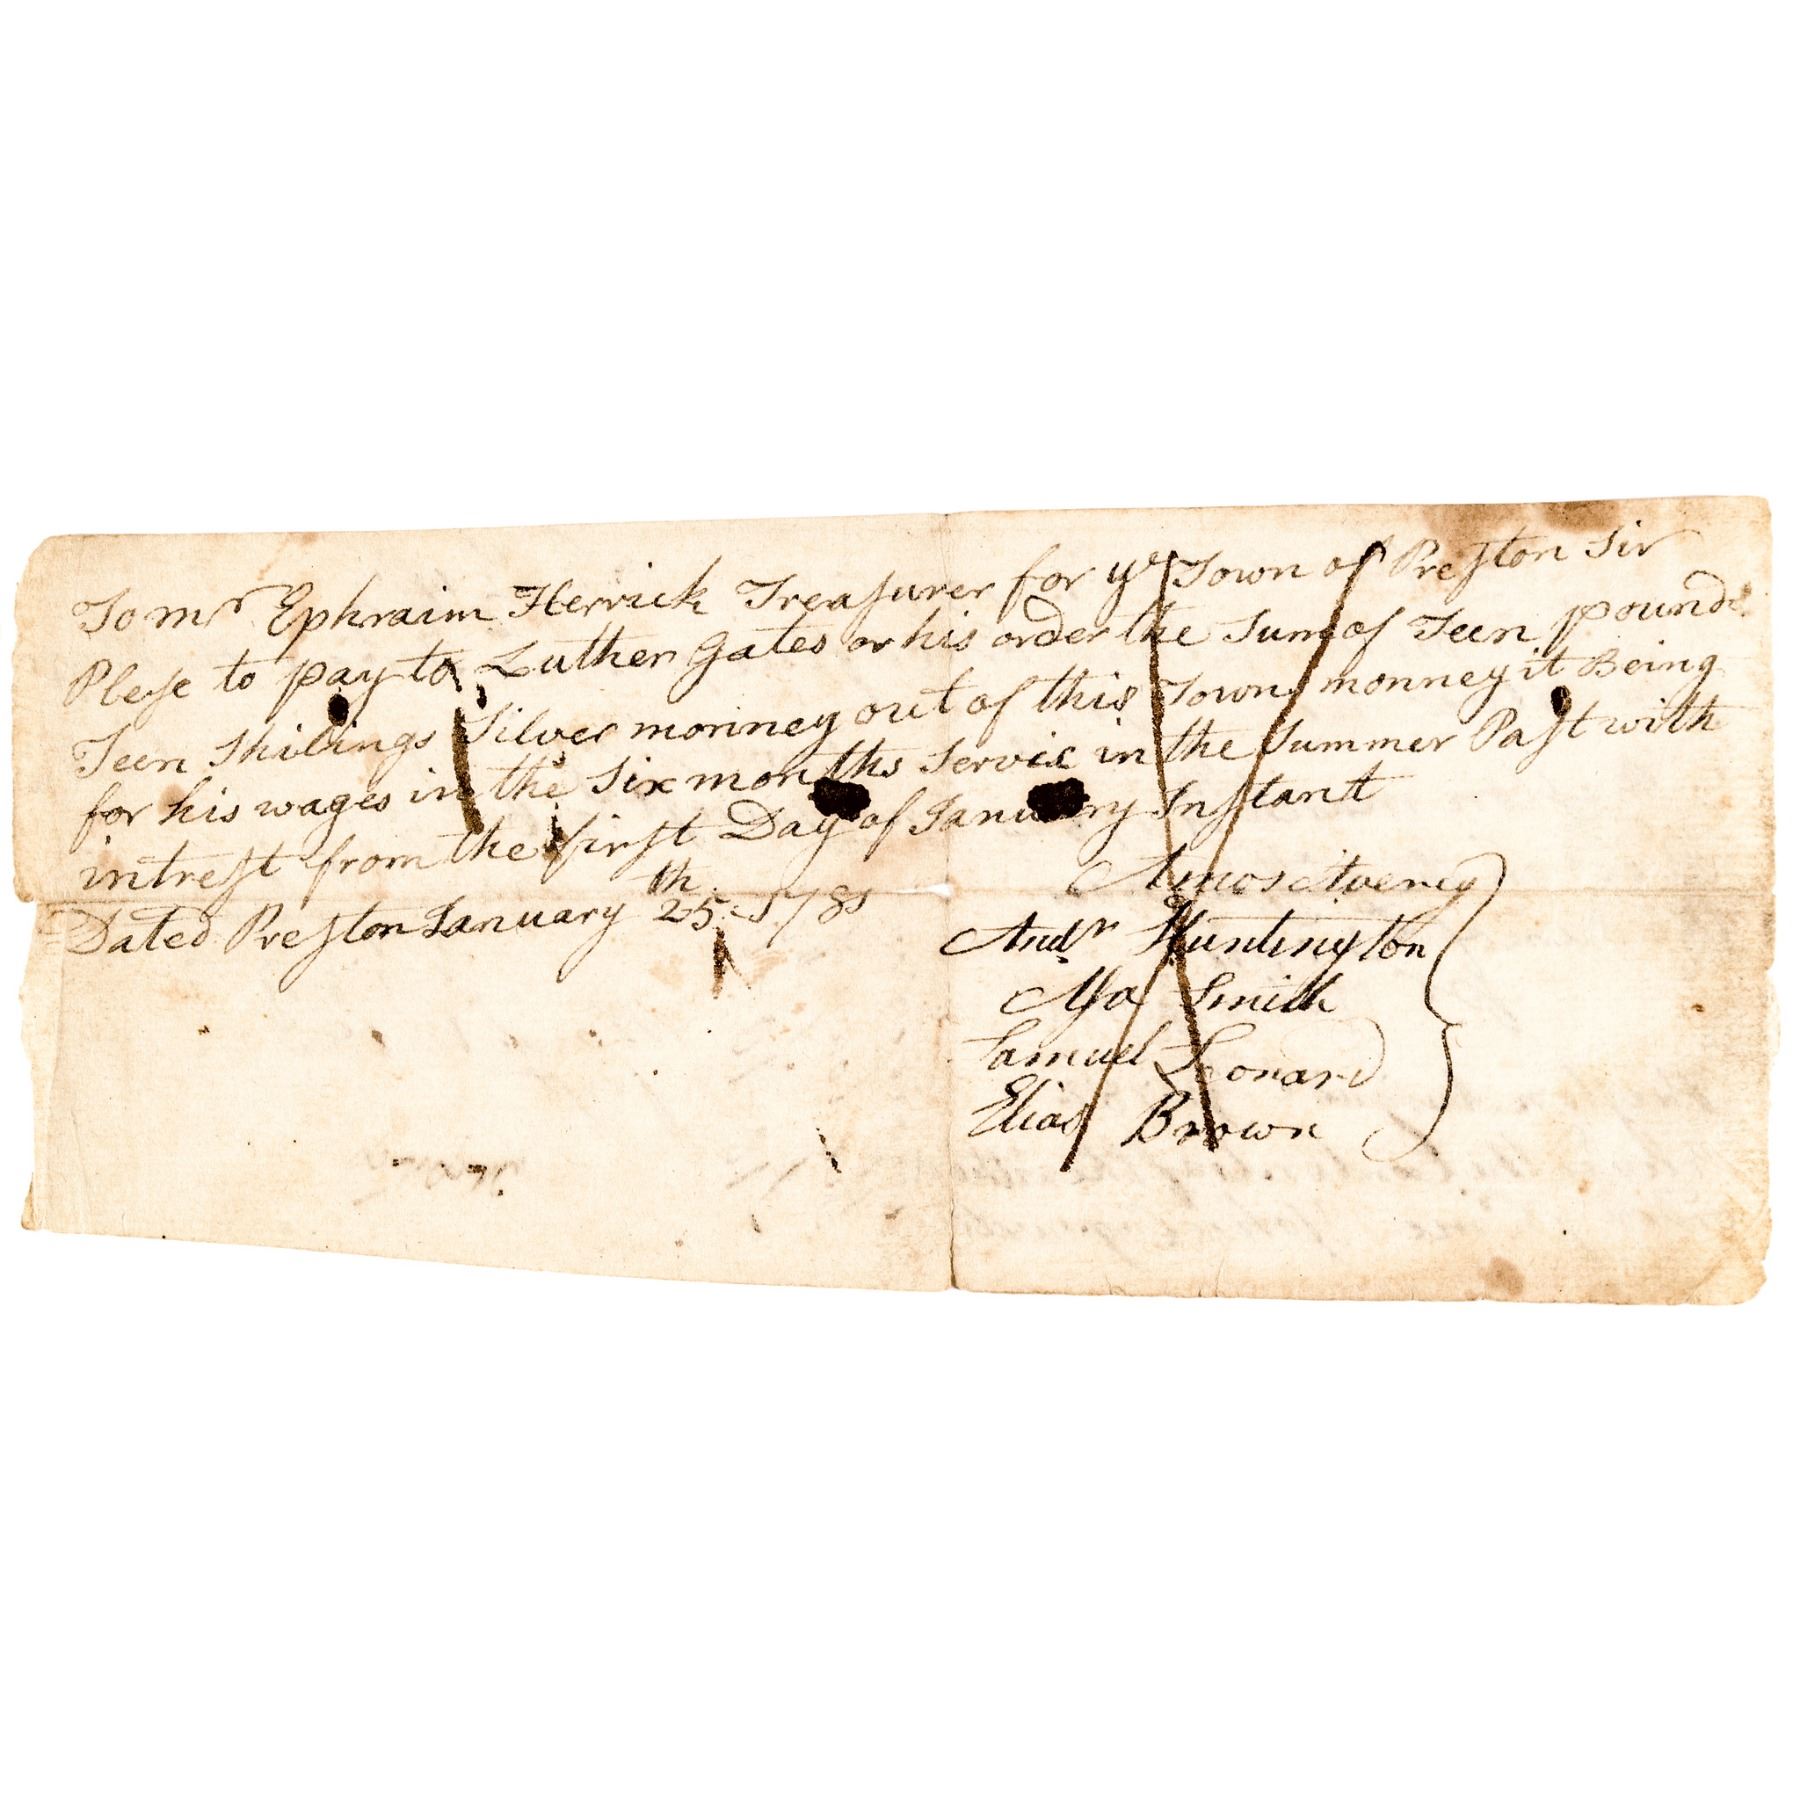 To mr Ephraim Herrick Treaſurer for ye Town of Preſton Sir
Pleſe to pay to Luther Gates or his order the Sum of Teen pounds
Teen Shilings Silver monney out of this Town monney it Being
for his wages in the Six months Servic in the Summer Paſt with
intreſt from the firſt Day of January Inſtant
Dated Preſton January 25th 1781
Amos Averey
Andr Huntington
Aſa Smith
Samuel Leonard
Elias Brown